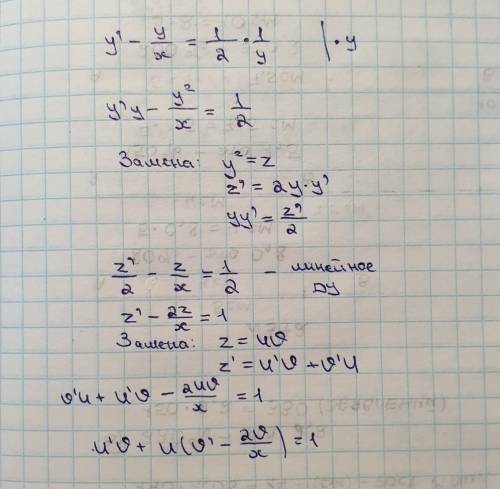 y' - y/x = 1/2 · 1/y | · y
y'y - y²/x = 1/2
Замена: y² = z
z' = 2y·y'
yy' = z'/2
z'/2 - z/x = 1/2 - линейное ДУ
z' - 2z/x = 1
Замена: z = uϑ
z' = u'ϑ + ϑ'u
ϑ'u + u'ϑ - 2uϑ/x = 1
u'ϑ + u(ϑ' - 2ϑ/x) = 1